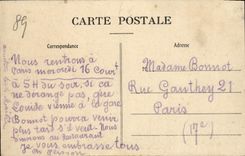 89
CARTE POSTALE
Correspondance
Nous rentrons à
Paris mercredi 16 Court
à 5H du soir, si ça
ne dérange pas que
Louise vienne à la gare
Bonnot pourra venir
plus tard s'il veut. Nous
dînerons au Restaurant
Je vous embrasse tous
Madame Bonnot
Rue Gauthey 21
Paris
(17e)